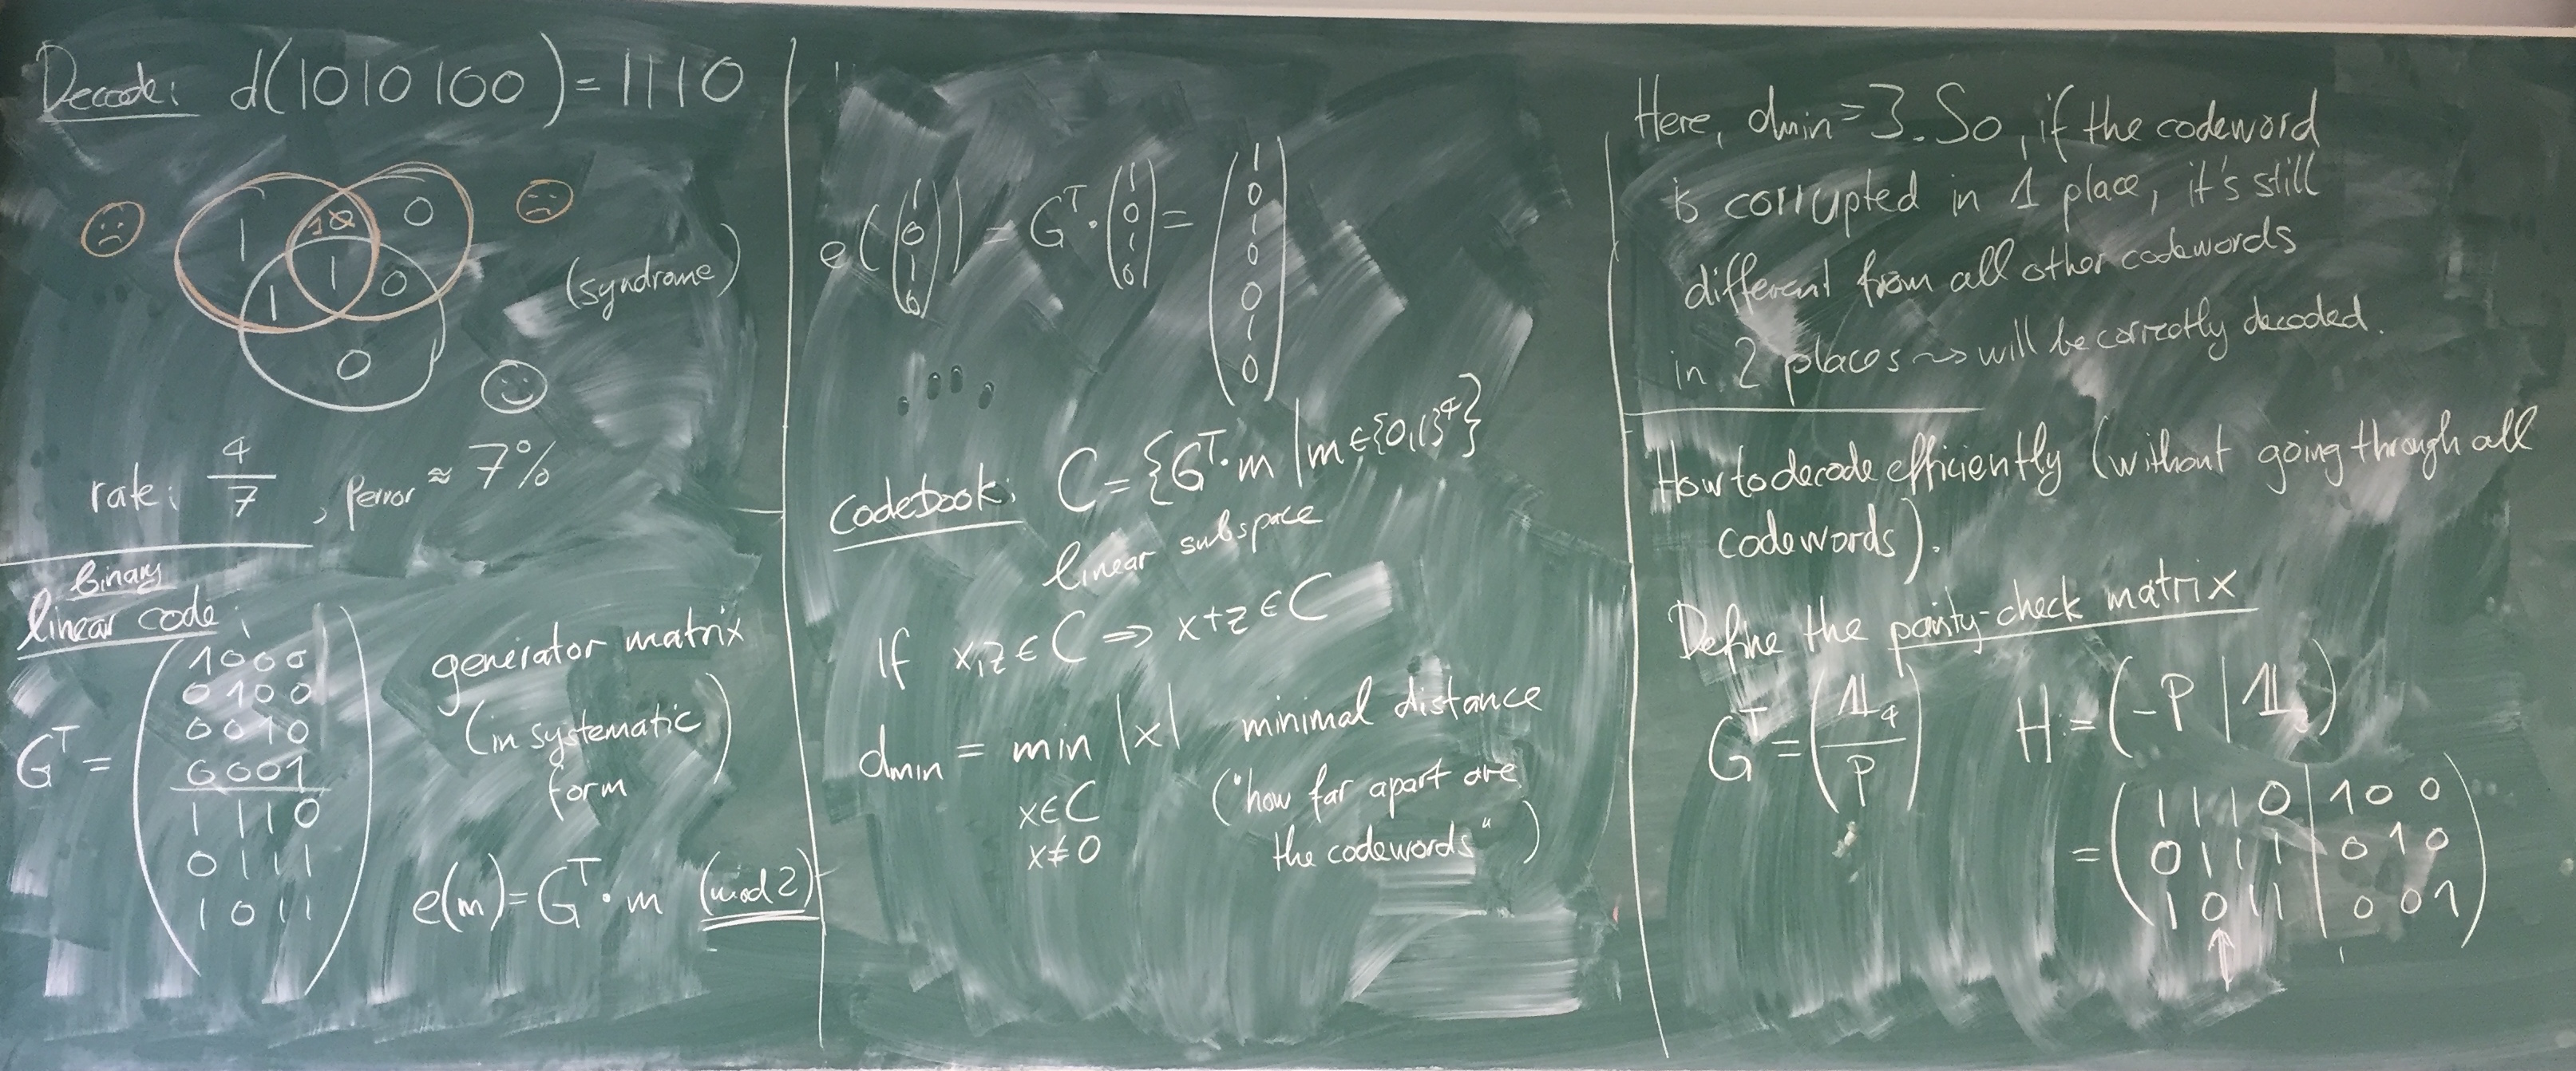 Decode: d(1010100) = 1110
1 1 0 0
1 1 0
0
(syndrome)
rate: 4/7 , perror ≈ 7%
binary
linear code:
G^T = ( 1000
0100
0010
0001
1110
0111
1011 )
generator matrix
(in systematic
form)
e(m) = G^T · m (mod 2)
e((1 0 1 0)) = G^T · (1 0 1 0) = (1 0 1 0 0 1 0)
Codebook: C = {G^T · m | m ∈ {0,1}^4}
linear subspace
If x,z ∈ C ⇒ x+z ∈ C
dmin = min |x| minimal distance
x∈C
x≠0
("how far apart are
the codewords")
Here, dmin = 3. So, if the codeword
is corrupted in 1 place, it's still
different from all other codewords
in 2 places ⇝ will be correctly decoded.
How to decode efficiently (without going through all
codewords).
Define the parity-check matrix
G^T = (𝟙4 / P) H := (-P | 𝟙3)
= ( 1110 | 100
0111 | 010
1011 | 001 )